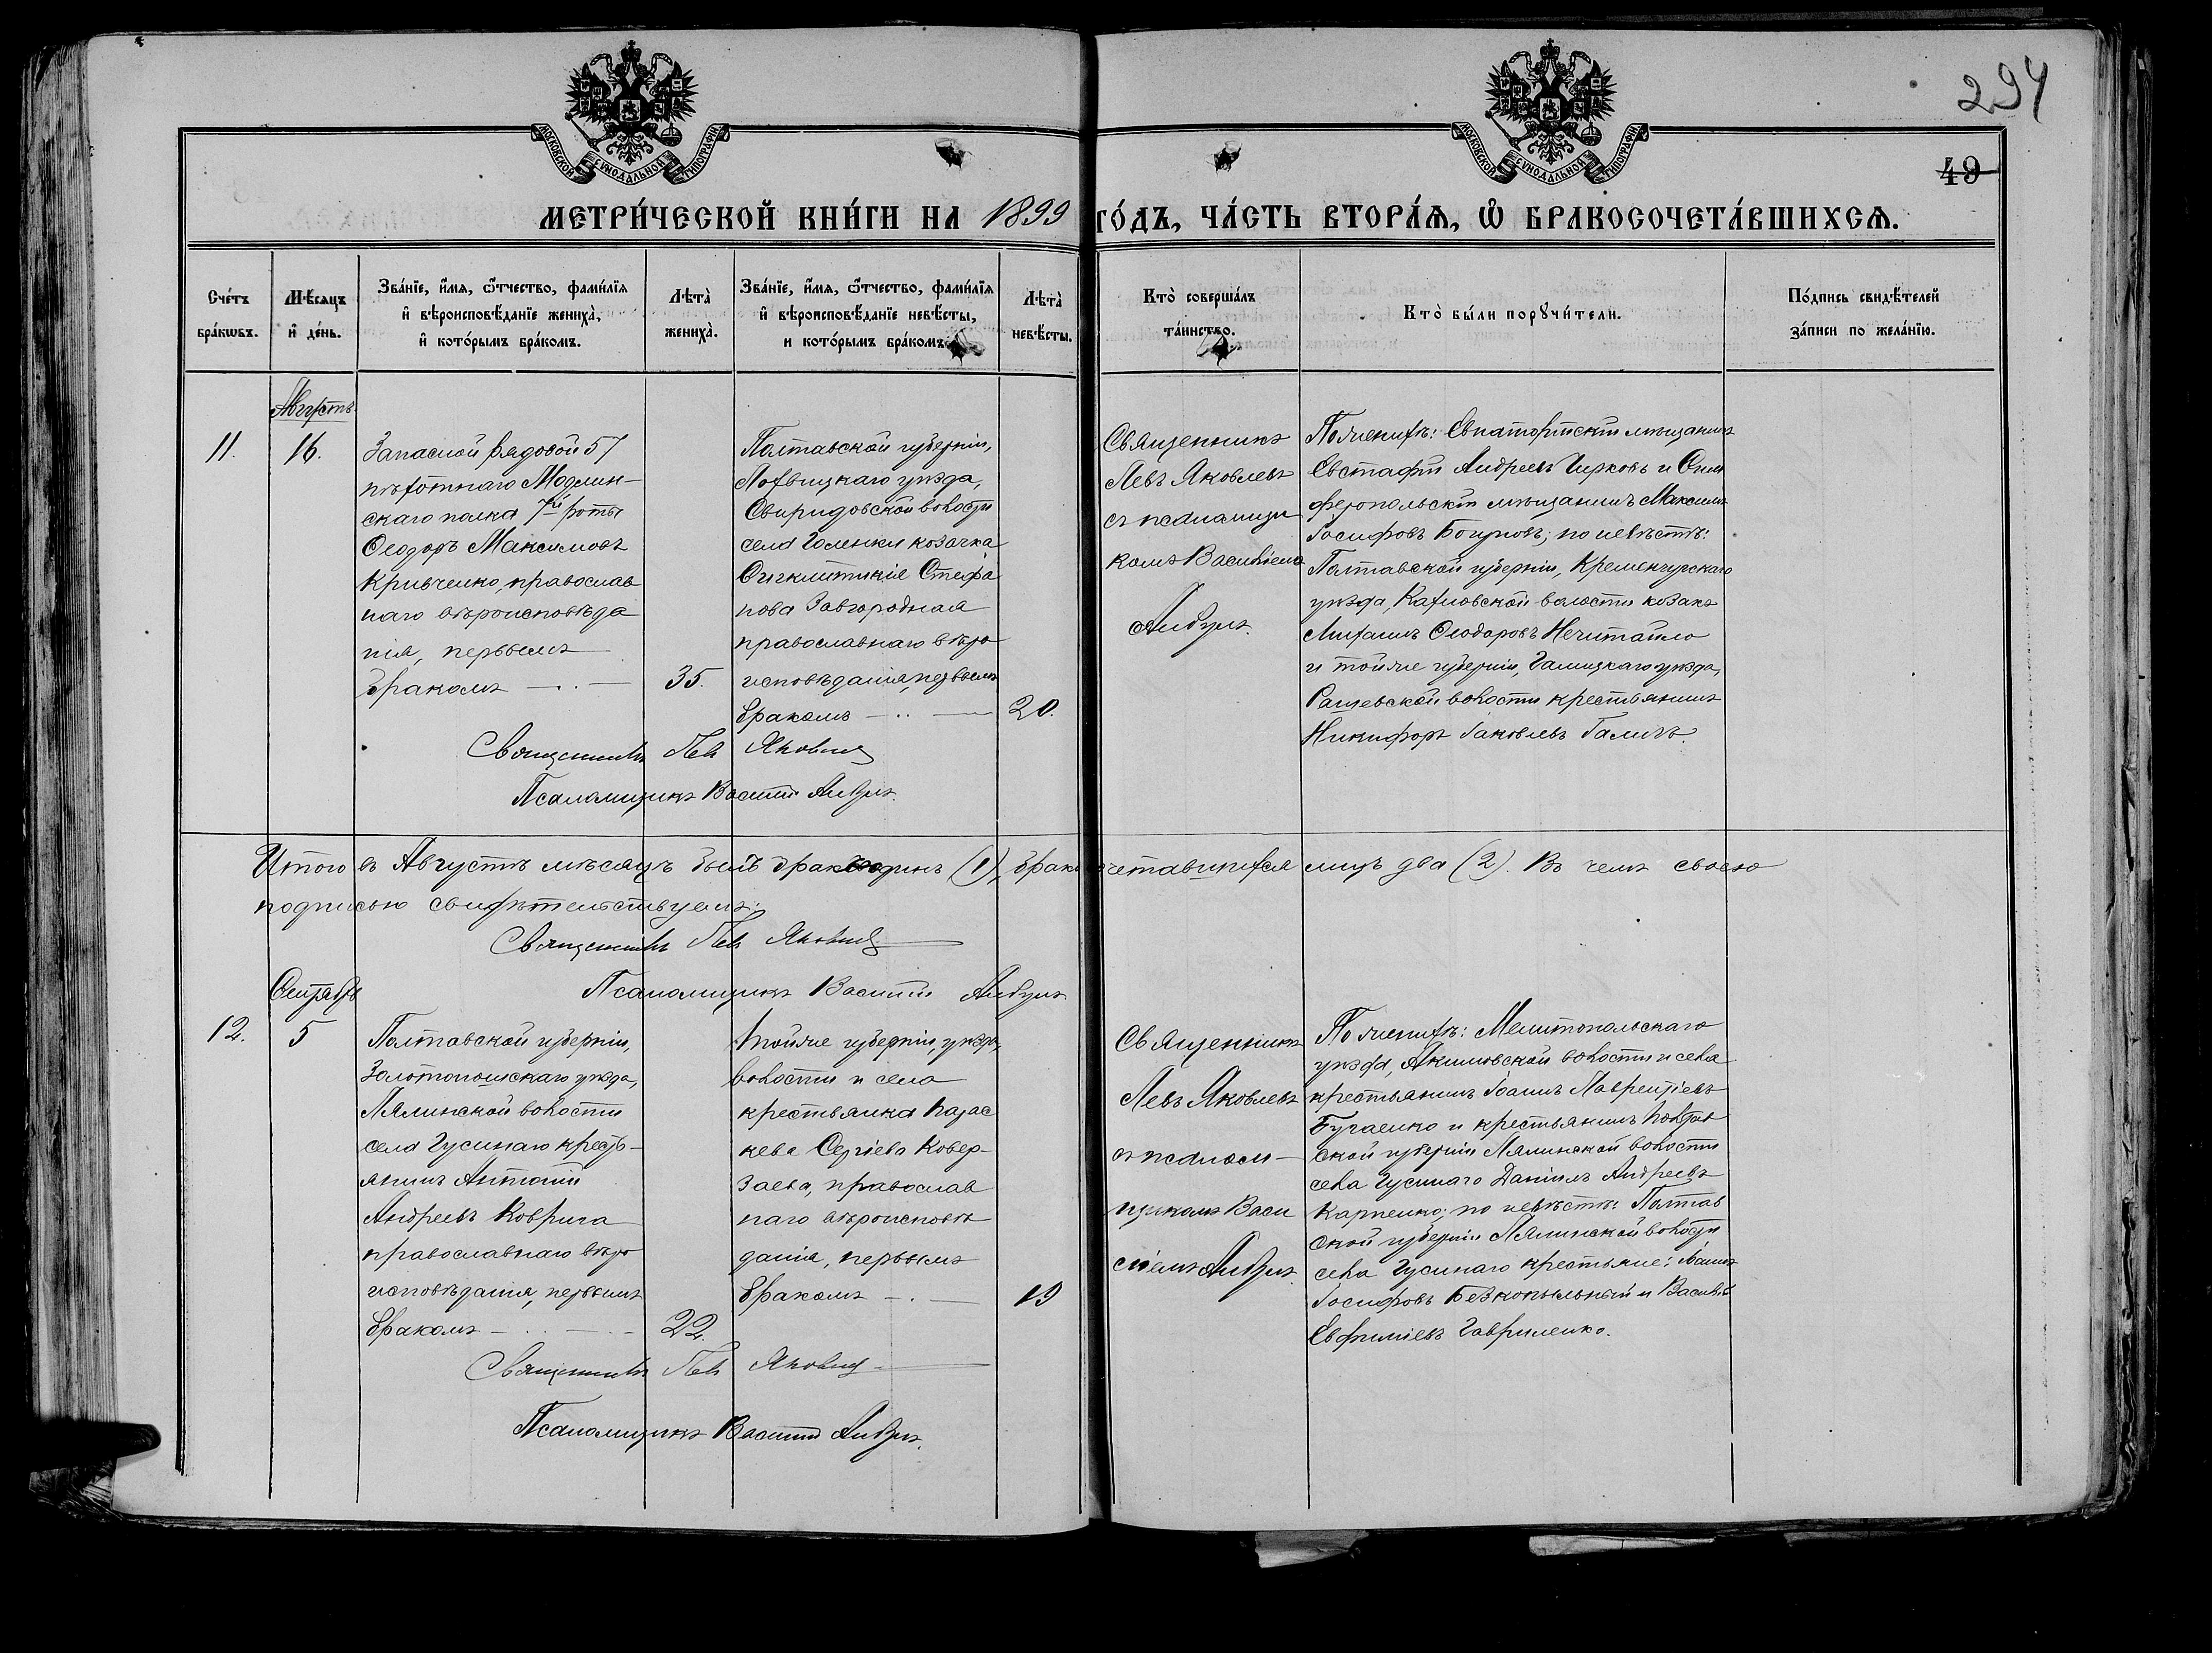 294
49
МОСКОВСКОЙ СУНОДАЛЬНОЙ ТИПОГРАФІИ
МОСКОВСКОЙ СУНОДАЛЬНОЙ ТИПОГРАФІИ
МЕТРИ́ЧЕСКОЙ КНИ́ГИ НА 1899 ГО́ДЪ, ЧА́СТЬ ВТОРА́Я, Ѡ БРАКОСОЧЕТА́ВШИХСЯ.
Сче́тъ
бра́кѡвъ.
Мѣ́сяцъ
и҆ де́нь.
Зва́нїе, и҆́мя, ѻ҆́тчество, фами́лїя
и҆ вѣроисповѣ́данїе жениха̀,
и҆ кото́рымъ бра́комъ.
Лѣта̀
жениха̀.
Зва́нїе, и҆́мя, ѻ҆́тчество, фами́лїя
и҆ вѣроисповѣ́данїе невѣ́сты,
и кото́рымъ бра́комъ.
Лѣта̀
невѣ́сты.
Кто̀ соверша́лъ
та́инство.
Кто̀ бы́ли порꙋчи́тели.
По́дпись свидѣ́телей
за́писи по жела́нїю.
Августъ
11.
16.
Запасной рядовой 57
пѣхотнаго Модлин-
скаго полка 7й роты
Ѳеодоръ Максимовъ
Кривченко, православ
наго вѣроисповѣда
нія, первымъ
бракомъ
35.
Полтавской губерніи,
Лохвицкаго уѣзда,
Свиридовской волости
села Голенки козачка
Сигклитикіе Стефа
нова Завгородная
православнаго вѣро
исповѣданія, первымъ
бракомъ
20.
Священникъ
Левъ Яковлевъ
съ псаломщи
комъ Василіемъ
Поженихѣ: Евпаторійскій мѣщанинъ
Евстафій Андреевъ Чирковъ и Сим
феропольскій мѣщанинъ Максимъ
Іосифовъ Богуновъ; по невѣстѣ:
Полтавской губерніи, Кременчугскаго
уѣзда, волости козакъ
Михаилъ Ѳеодоровъ Нечитайло
и тойже губерніи, Гадяцкаго уѣзда,
Рашевской волости крестьянинъ
Никифоръ Іаковлевъ Галичъ.
Священникъ Левъ Яковлевъ
Псаломщикъ Василій
Итого въ Августѣ мѣсяцѣ былъ бракъ одинъ (1), бракосочетавшихся лицъ два (2). Въ чемъ своею
подписью свидѣтельствуемъ:
Священникъ Левъ Яковлевъ
Псаломщикъ Василій
Сентябрь
12.
5
Полтавской губерніи,
Золотоношскаго уѣзда,
Лялинской волости
села Гусинаго кресть-
янинъ Антоній
Андреевъ Коврига
православнаго вѣро
исповѣданія, первымъ
бракомъ
22.
Тойже губерніи, уѣзда,
волости и села
крестьянка Парас
кева Сергіева Ковер-
заева, православ
наго вѣроисповѣ
данія, первымъ
бракомъ
19
Священникъ
Левъ Яковлевъ
съ псалом-
щикомъ Васи
ліемъ
По женихѣ: Мелитопольскаго
уѣзда, Акимовской волости и села
крестьянинъ Іоаннъ Лаврентіевъ
Бугаенко и крестьянинъ Полтав
ской губерніи Лялинской волости
села Гусинаго Даніилъ Андреевъ
Карпенко; по невѣстѣ: Полтав
ской губерніи Лялинской волости
села Гусинаго крестьяне: Іоаннъ
Іосифовъ Безкопыльный и Василій
Евфиміевъ Гавриленко.
Священникъ Левъ Яковлевъ
Псаломщикъ Василій